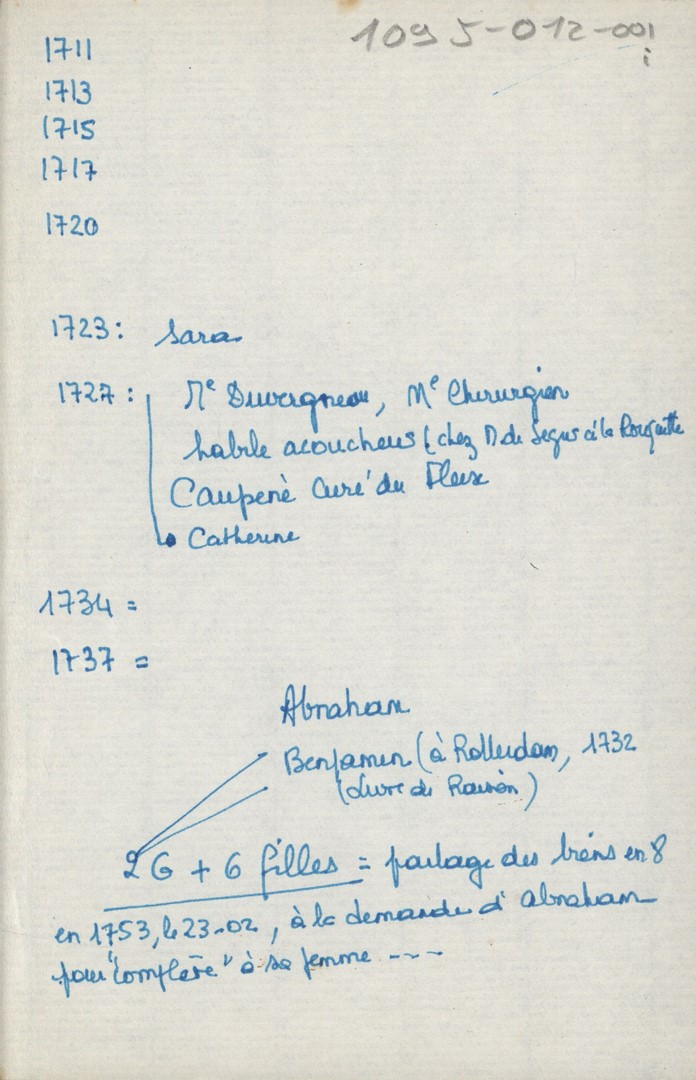 1095-012-001
i
1711
1713
1715
1717
1720
1723: Sara
1727: Me Duvergneau, Me Chirurgien
habile acoucheur (chez D de Segur à la Rouquette
Caupenè Curé du Fleix
Catherine
1734 =
1737 =
Abraham
Benjamin (à Rotterdam, 1732
(Livre de Raison)
2 G + 6 filles = partage des biens en 8
en 1753, le 23-02, à la demande d'Abraham
pour "complaire" à sa femme ----